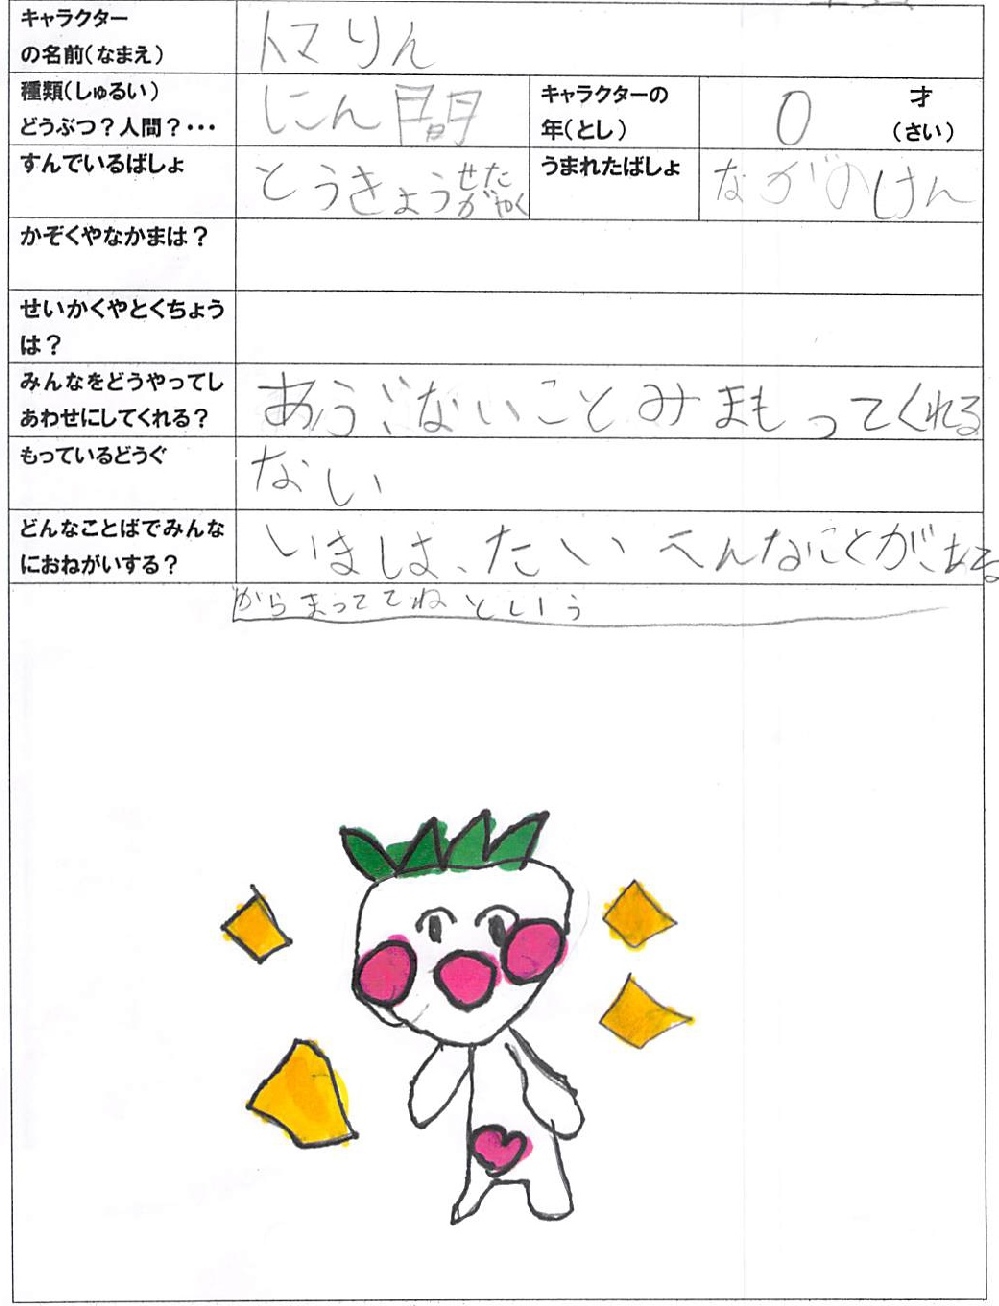 キャラクター
の名前(なまえ)
トマりん
種類(しゅるい)
どうぶつ？人間？・・・
にん間
キャラクターの
年(とし)
0
才
(さい)
すんでいるばしょ
とうきょうせた
がやく
うまれたばしょ
ながのけん
かぞくやなかまは？
せいかくやとくちょう
は？
みんなをどうやってし
あわせにしてくれる？
あぶないことみまもってくれる
もっているどうぐ
ない
どんなことばでみんな
におねがいする？
いまは、たいへんなことがある。
からまっててねという